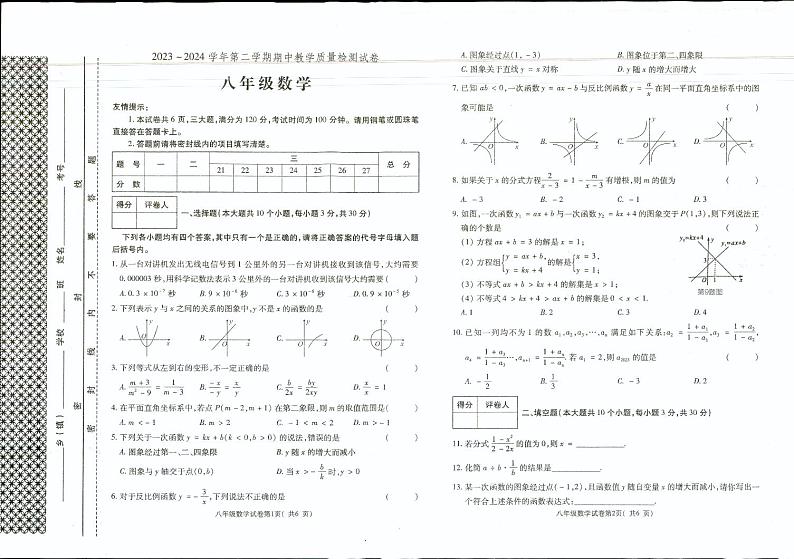 2023～2024 学年第二学期期中教学质量检测试卷
八年级数学
友情提示：
1. 本试卷共 6 页，三大题，满分为 120 分，考试时间为 100 分钟。请用钢笔或圆珠笔
直接答在答题卡上。
2. 答题前请将密封线内的项目填写清楚。
题 号 一 二 三 总 分
21 22 23 24 25 26 27
分 数
得分 评卷人
一、选择题（本大题共 10 个小题，每小题 3 分，共 30 分）
下列各小题均有四个答案，其中只有一个是正确的，请将正确答案的代号字母填入题
后括号内。
1. 从一台对讲机发出无线电信号到 1 公里外的另一台对讲机接收到该信号，大约需要
0.000003 秒，用科学记数法表示 3 公里外的一台对讲机收到该信号大约需要（ ）
A. 0.3×10⁻⁷ 秒 B. 9×10⁻⁶ 秒 C. 3×10⁻⁶ 秒 D. 0.9×10⁻⁵ 秒
2. 下列表示 y 与 x 之间的关系的图象中，y 不是 x 的函数的是（ ）
A. B. C. D.
3. 下列等式从左到右的变形，不一定正确的是（ ）
A. (m+3)/(m²-9) = 1/(m-3) B. (-x)/(-y) = x/y C. b/2x = by/2xy D. x/x = 1
4. 在平面直角坐标系中，若点 P(m-2,m+1) 在第二象限，则 m 的取值范围是（ ）
A. m < -1 B. m > 2 C. -1 < m < 2 D. m > -1
5. 下列关于一次函数 y = kx + b(k < 0,b > 0) 的说法，错误的是（ ）
A. 图象经过第一、二、四象限 B. y 随 x 的增大而减小
C. 图象与 y 轴交于点(0,b) D. 当 x > -b/k 时，y > 0
6. 对于反比例函数 y = -3/x，下列说法不正确的是（ ）
八年级数学试卷第1页（共6 页）
A. 图象经过点(1,-3) B. 图象位于第二、四象限
C. 图象关于直线 y = x 对称 D. y 随 x 的增大而增大
7. 已知 ab < 0，一次函数 y = ax - b 与反比例函数 y = a/x 在同一平面直角坐标系中的图
象可能是（ ）
A. B. C. D.
8. 如果关于 x 的分式方程 2/(x-3) = 1 - m/(x-3) 有增根，则 m 的值为（ ）
A. -3 B. -2 C. -1 D. 3
9. 如图，一次函数 y₁ = ax + b 与一次函数 y₂ = kx + 4 的图象交于 P(1,3)，则下列说法正
确的个数是（ ）
(1) 方程 ax + b = 3 的解是 x = 1；
(2) 方程组{y = ax + b, y = kx + 4 的解是{x = 3, y = 1；
(3) 不等式 ax + b > kx + 4 的解集是 x > 1；
(4) 不等式 4 > kx + 4 > ax + b 的解集是 0 < x < 1.
y₂=kx+4 y₁=ax+b
第9题图
A. 1 B. 2 C. 3 D. 4
10. 已知一列均不为 1 的数 a₁,a₂,a₃,⋯,aₙ 满足如下关系：a₂ = (1+a₁)/(1-a₁)，a₃ = (1+a₂)/(1-a₂)，
a₄ = (1+a₃)/(1-a₃)⋯，aₙ₊₁ = (1+aₙ)/(1-aₙ)，若 a₁ = 2，则 a₂₀₂₃ 的值是（ ）
A. -1/2 B. 1/3 C. -3 D. 2
得分 评卷人
二、填空题（本大题共 10 个小题，每小题 3 分，共 30 分）
11. 若分式 (1-x²)/(2-2x) 的值为 0，则 x = ____.
12. 化简 a ÷ b · 1/b 的结果是____.
13. 某一次函数的图象过点(-1,2)，且函数值 y 随自变量 x 的增大而减小，请你写出一
个符合上述条件的函数表达式：____.
八年级数学试卷第2页（共6 页）
乡（镇） 学校 班 姓名 考号
密 封 线 内 不 要 答 题
密 封 线